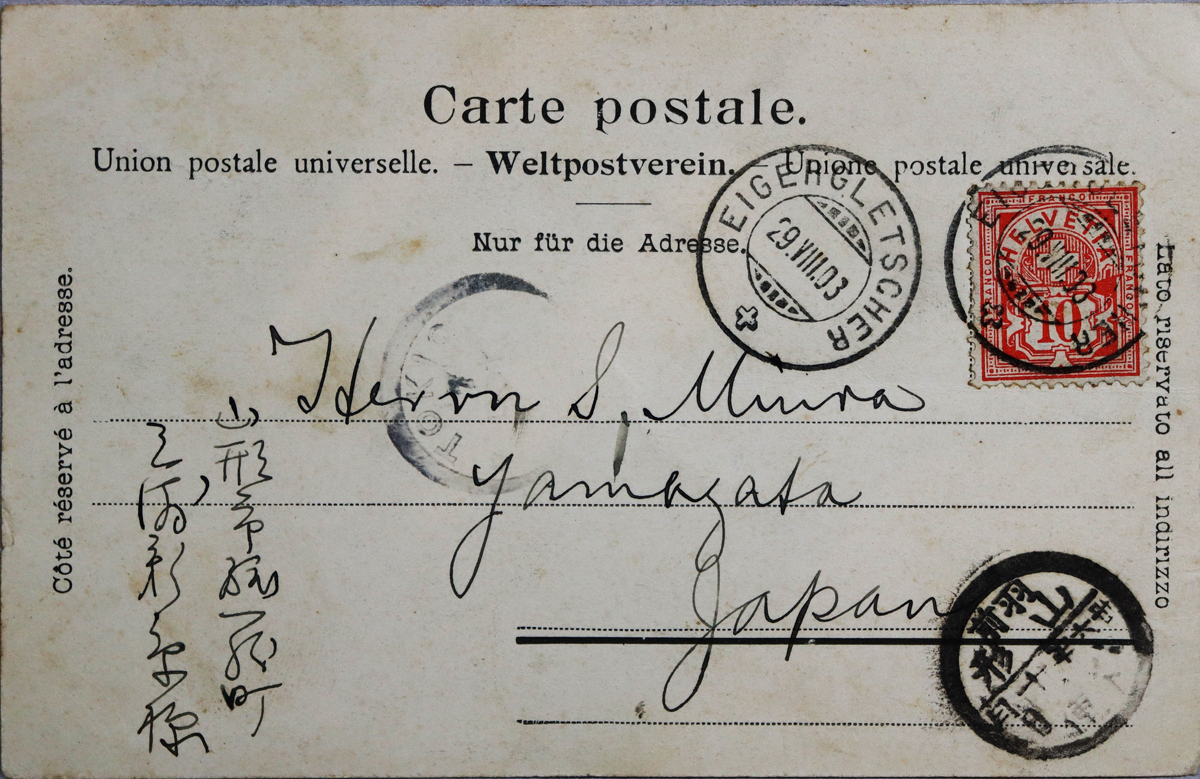 Carte postale.
Union postale universelle. – Weltpostverein. – Unione postale universale.
Nur für die Adresse.
Côté réservé à l'adresse.
Lato riservato all indirizzo
EIGERGLETSCHER
29.VIII.03
FRANCO
HELVETIA
FRANCO
FRANCO
10
29.VIII.03
TOKIO
Herrn S. Miura
Yamagata
Japan
山形市
町
三浦
様
羽前
山形